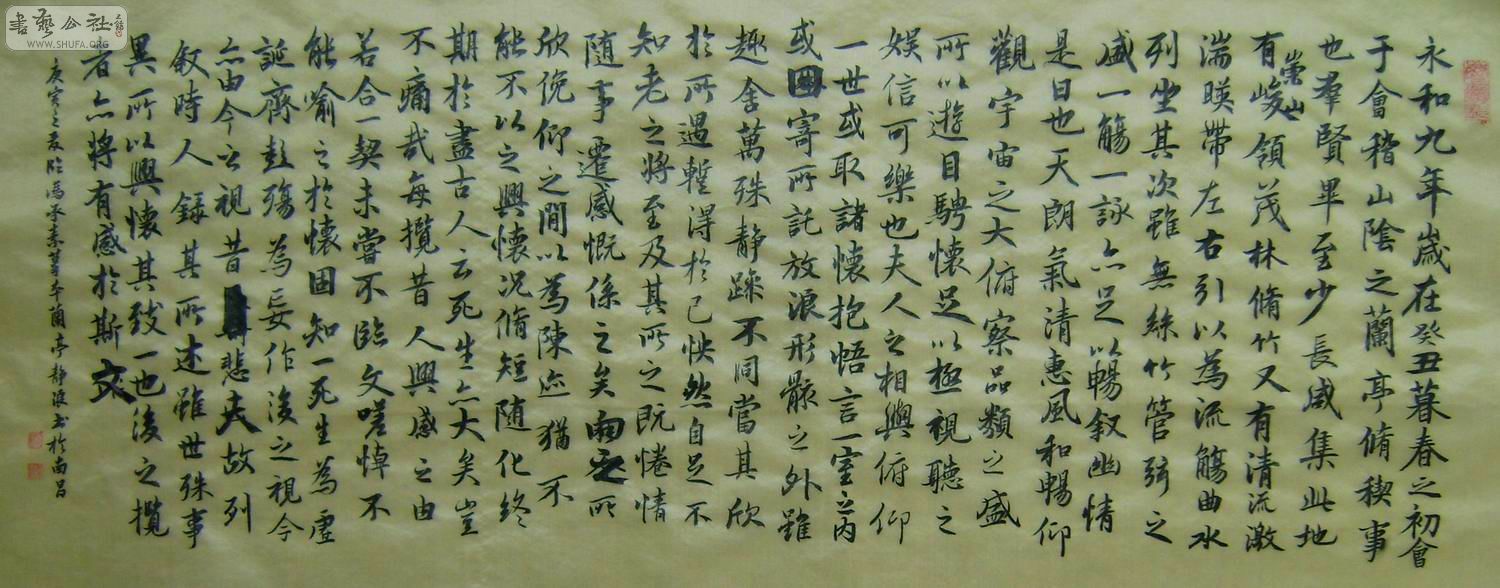 永和九年歲在癸丑暮春之初會
于會稽山陰之蘭亭脩稧事
也羣賢畢至少長咸集此地
有崇山峻領茂林脩竹又有清流激
湍暎帶左右引以為流觴曲水
列坐其次雖無絲竹管弦之
盛一觴一詠亦足以暢叙幽情
是日也天朗氣清惠風和暢仰
觀宇宙之大俯察品類之盛
所以遊目騁懷足以極視聽之
娛信可樂也夫人之相與俯仰
一世或取諸懷抱悟言一室之內
或因寄所託放浪形骸之外雖
趣舍萬殊静躁不同當其欣
於所遇蹔得於己怏然自足不
知老之將至及其所之既惓情
隨事遷感慨係之矣向之所
欣俛仰之閒以為陳迹猶不
能不以之興懷況脩短隨化終
期於盡古人云死生亦大矣豈
不痛哉每攬昔人興感之由
若合一契未嘗不臨文嗟悼不
能喻之於懷固知一死生為虛
誕齊彭殤為妄作後之視今
亦由今之視昔悲夫故列
叙時人錄其所述雖世殊事
異所以興懷其致一也後之攬
者亦將有感於斯文
庚寅之夏臨馮承素摹本蘭亭静波書於南昌
書藝公社
WWW.SHUFA.ORG